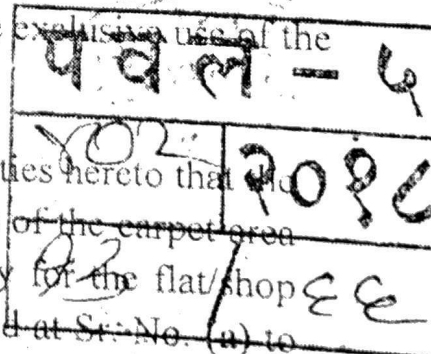 exclusive use of the
पवल - ५
४०२
ties hereto that
२०१८
of the carpet area
for the flat/shop
६६
d at Sr. No. (a) to